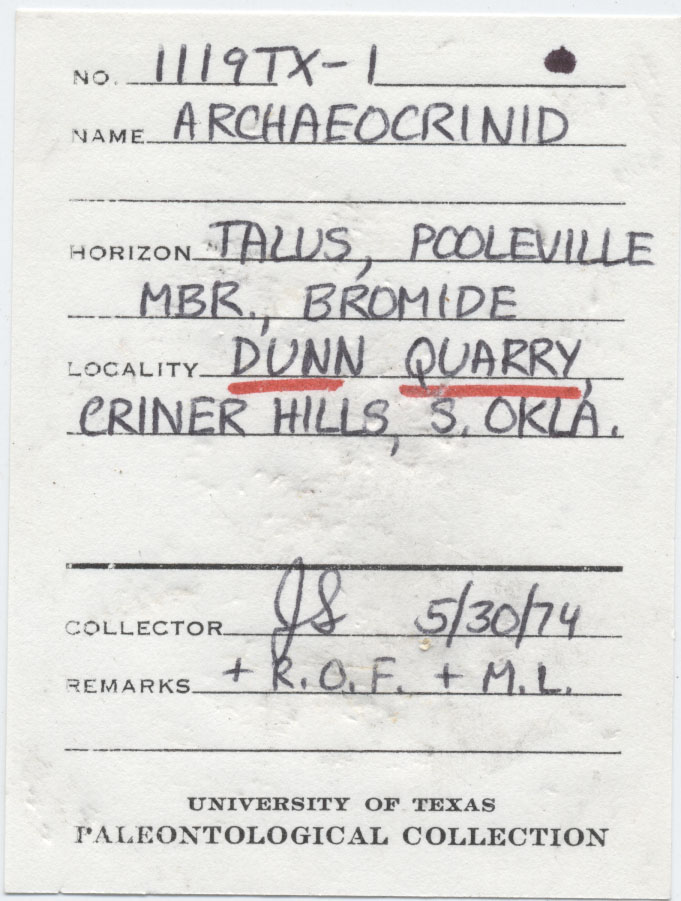 NO. 1119TX-1
NAME ARCHAEOCRINID
HORIZON TALUS, POOLEVILLE
MBR., BROMIDE
LOCALITY DUNN QUARRY,
CRINER HILLS, S. OKLA.
COLLECTOR JS 5/30/74
REMARKS + R.O.F. + M.L.
UNIVERSITY OF TEXAS
PALEONTOLOGICAL COLLECTION